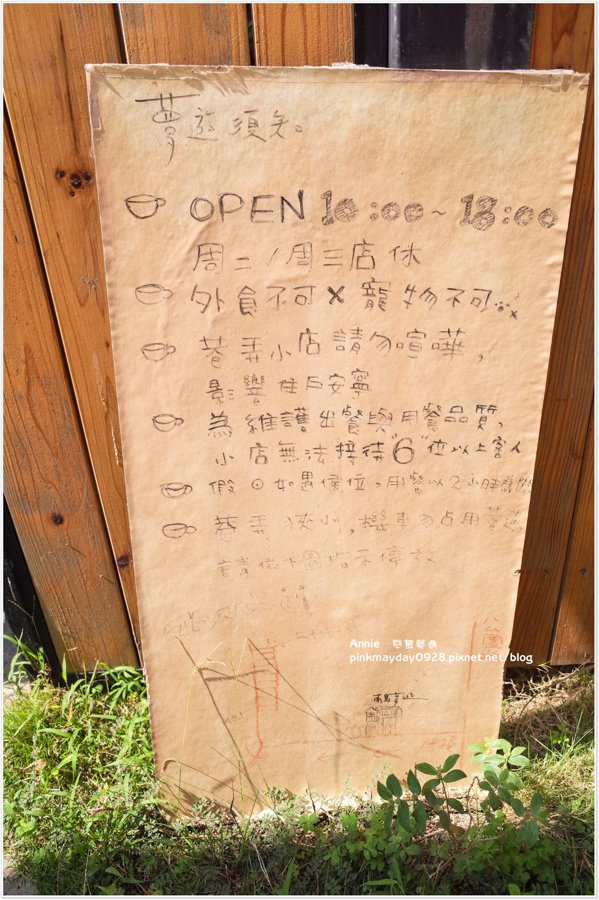 夢遊須知。
OPEN 10:00~18:00
周二/周三店休
外食不可×寵物不可
巷弄小店請勿喧嘩，
影響住戶安寧
為維護出餐與用餐品質，
小店無法接待"6"位以上客人
假日如遇候位，用餐以2小時為限
巷弄狹小，機車勿占用巷道
請依下圖指示停放
公園
Annie
pinkmayday0928.pixnet.net/blog